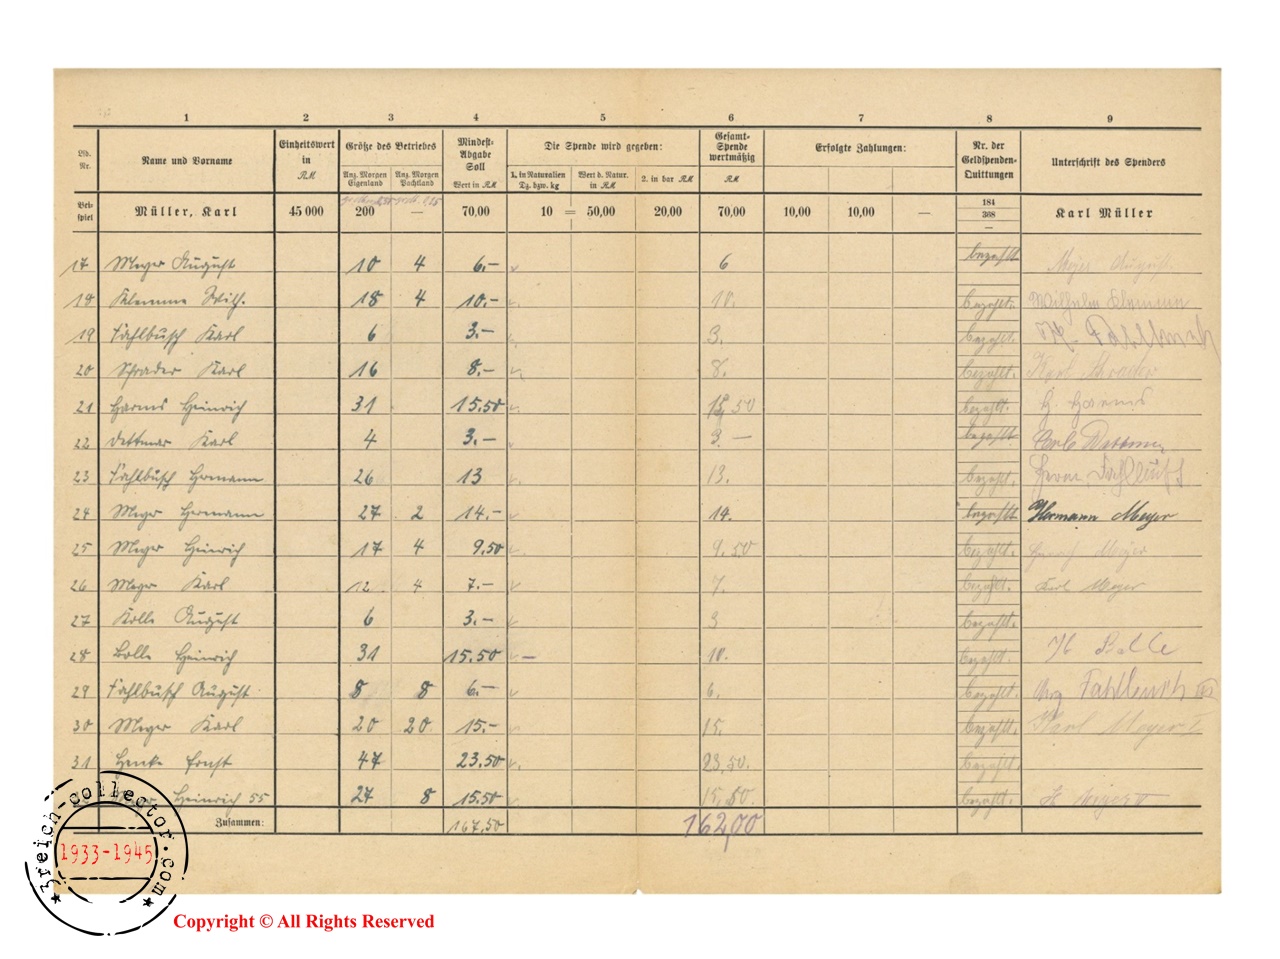 1 2 3 4 5 6 7 8 9
Lfd. Nr. Name und Vorname Einheitswert in RM Größe des Betriebes Anz. Morgen Eigenland Anz. Morgen Pachtland Mindest-Abgabe Soll Wert in RM Die Spende wird gegeben: 1. in Naturalien Dz. bzw. kg Wert d. Natur. in RM 2. in bar RM Gesamt-Spende wertmäßig RM Erfolgte Zahlungen: Nr. der Geldspenden-Quittungen Unterschrift des Spenders
Bei-spiel Müller, Karl 45 000 200 — 70,00 10 = 50,00 20,00 70,00 10,00 10,00 — 184 368 — Karl Müller
17 Meyer August 10 4 6.– 6 bezahlt Meyer August
18 Klemme Wilh. 18 4 10.– 10. bezahlt. Wilhelm Klemme
19 Fahlbusch Karl 6 3.– 3. bezahlt. K. Fahlbusch
20 Schrader Karl 16 8.– 8. bezahlt. Karl Schrader
21 Harms Heinrich 31 15.50 15,50 bezahlt. H. Harms
22 Dettmar Karl 4 3.— 3.— bezahlt Carl Dettmer
23 Fahlbusch Hermann 26 13 13. bezahlt. Herm Fahlbusch
24 Meyer Hermann 27 2 14.– 14. bezahlt Hermann Meyer
25 Meyer Heinrich 17 4 9.50 9.50 bezahlt. Heinrich Meyer
26 Meyer Karl 12 4 7.– 7. bezahlt. Karl Meyer
27 Kolle August 6 3.– 3 bezahlt.
28 Bolle Heinrich 31 15.50 – 10. bezahlt. H Bolle
29 Fahlbusch August 8 8 6.– 6. bezahlt. Aug Fahlbusch III
30 Meyer Karl 20 20 15.– 15. bezahlt. Karl Meyer I
31 Henke Ernst 47 23.50 23.50. bezahlt.
Heinrich 55 27 8 15.50 15,50. bezahlt. H Meyer II
Zusammen: 167,50 162,00
3reich-collector.com
1933-1945
Copyright © All Rights Reserved